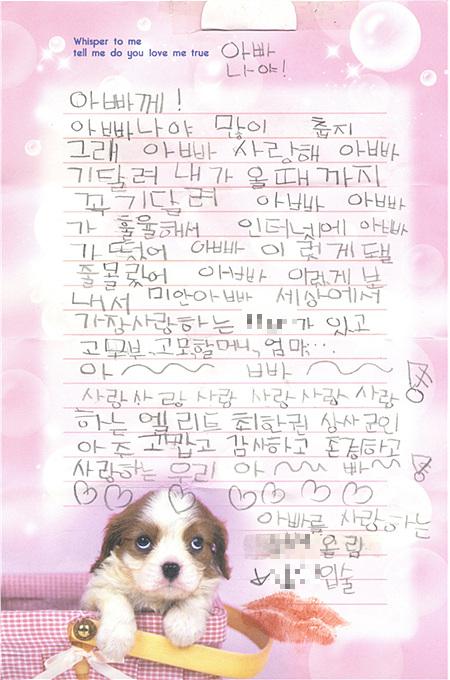 Whisper to me
tell me do you love me true
아빠
나야!
아빠께!
아빠나야 많이 춥지
그래 아빠 사랑해 아빠
기달려 내가 올때까지
꼭 기달려 아빠 아빠
가 훌륭해서 인터넷에 아빠
가 떴어 아빠 이렇게 될
줄몰랐어 아빠 이렇게 보
내서 미안아빠 세상에서
가장사랑하는 가 있고
고모부, 고모할머니, 엄마...
아~ 빠~
사랑사랑 사랑 사랑사랑 사랑
하는 엘리트 최한권 상사 군인
아주 고맙고 감사하고 존경하고
사랑하는 우리 아~ 빠~
아빠를 사랑하는
올림
입술